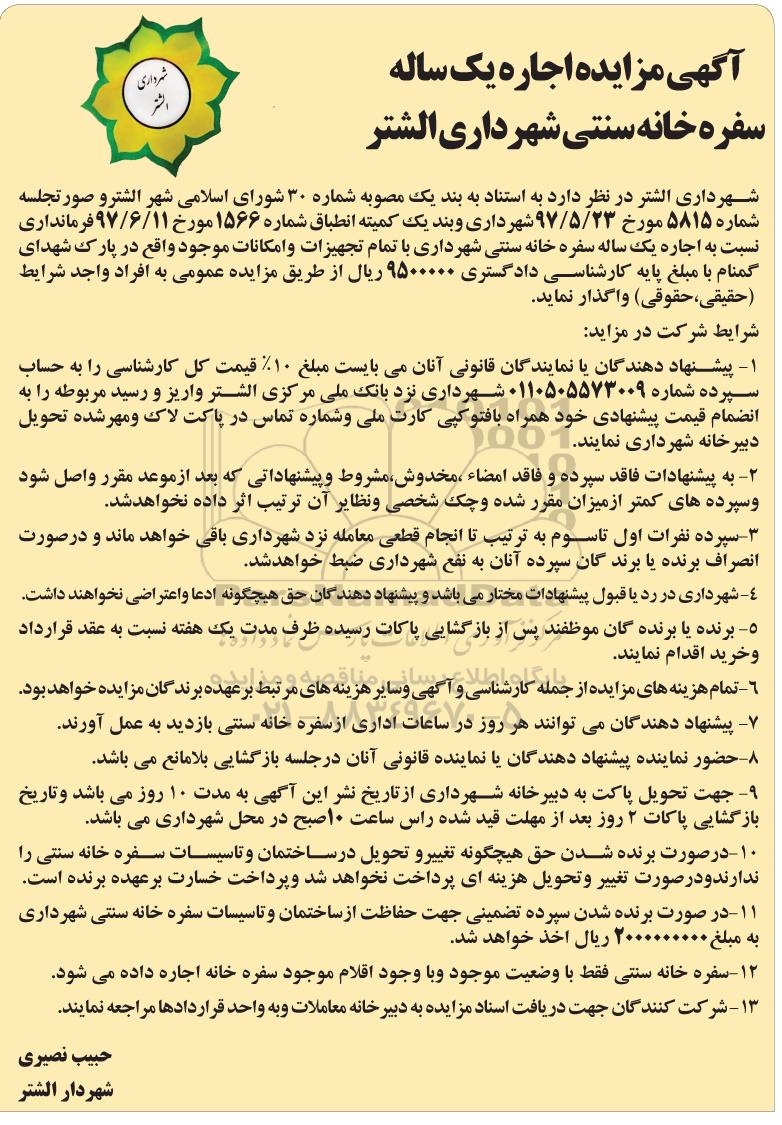 شهرداری
الشتر
آگهی مزایده اجاره یک ساله
سفره خانه سنتی شهرداری الشتر
شــهرداری الشتر در نظر دارد به استناد به بند یک مصوبه شماره ۳۰ شورای اسلامی شهر الشترو صورتجلسه
شماره ۵۸۱۵ مورخ ۹۷/۵/۲۳ شهرداری وبند یک کمیته انطباق شماره ۱۵۶۶ مورخ ۹۷/۶/۱۱ فرمانداری
نسبت به اجاره یک ساله سفره خانه سنتی شهرداری با تمام تجهیزات وامکانات موجود واقع در پارک شهدای
گمنام با مبلغ پایه کارشناســی دادگستری ۹۵۰۰۰۰۰ ریال از طریق مزایده عمومی به افراد واجد شرایط
(حقیقی،حقوقی) واگذار نماید.
شرایط شرکت در مزاید:
۱- پیشــنهاد دهندگان یا نمایندگان قانونی آنان می بایست مبلغ ۱۰٪ قیمت کل کارشناسی را به حساب
ســپرده شماره ۰۱۱۰۵۰۵۵۷۳۰۰۹ شــهرداری نزد بانک ملی مرکزی الشــتر واریز و رسید مربوطه را به
انضمام قیمت پیشنهادی خود همراه بافتوکپی کارت ملی وشماره تماس در پاکت لاک ومهرشده تحویل
دبیرخانه شهرداری نمایند.
۲- به پیشنهادات فاقد سپرده و فاقد امضاء ،مخدوش،مشروط وپیشنهاداتی که بعد ازموعد مقرر واصل شود
وسپرده های کمتر ازمیزان مقرر شده وچک شخصی ونظایر آن ترتیب اثر داده نخواهدشد.
۳-سپرده نفرات اول تاســوم به ترتیب تا انجام قطعی معامله نزد شهرداری باقی خواهد ماند و درصورت
انصراف برنده یا برند گان سپرده آنان به نفع شهرداری ضبط خواهدشد.
۴-شهرداری در رد یا قبول پیشنهادات مختار می باشد و پیشنهاد دهندگان حق هیچگونه ادعا واعتراضی نخواهند داشت.
۵- برنده یا برنده گان موظفند پس از بازگشایی پاکات رسیده ظرف مدت یک هفته نسبت به عقد قرارداد
وخرید اقدام نمایند.
۶-تمام هزینه های مزایده از جمله کارشناسی و آگهی وسایر هزینه های مرتبط بر عهده برندگان مزایده خواهد بود.
۷- پیشنهاد دهندگان می توانند هر روز در ساعات اداری ازسفره خانه سنتی بازدید به عمل آورند.
۸-حضور نماینده پیشنهاد دهندگان یا نماینده قانونی آنان درجلسه بازگشایی بلامانع می باشد.
۹- جهت تحویل پاکت به دبیرخانه شــهرداری ازتاریخ نشر این آگهی به مدت ۱۰ روز می باشد وتاریخ
بازگشایی پاکات ۲ روز بعد از مهلت قید شده راس ساعت ۱۰صبح در محل شهرداری می باشد.
۱۰-درصورت برنده شــدن حق هیچگونه تغییرو تحویل درســاختمان وتاسیســات ســفره خانه سنتی را
ندارندودرصورت تغییر وتحویل هزینه ای پرداخت نخواهد شد وپرداخت خسارت برعهده برنده است.
۱۱-در صورت برنده شدن سپرده تضمینی جهت حفاظت ازساختمان وتاسیسات سفره خانه سنتی شهرداری
به مبلغ ۲۰۰۰۰۰۰۰۰۰ ریال اخذ خواهد شد.
۱۲-سفره خانه سنتی فقط با وضعیت موجود وبا وجود اقلام موجود سفره خانه اجاره داده می شود.
۱۳-شرکت کنندگان جهت دریافت اسناد مزایده به دبیرخانه معاملات وبه واحد قراردادها مراجعه نمایند.
حبیب نصیری
شهردار الشتر
ParsNamadData
پایگاه اطلاع رسانی مناقصه و مزایده
۰۲۱-۸۸۳۴۹۶۷۰-۵